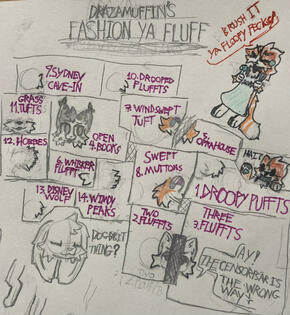 DRAZAMUFFIN'S
FASHION YA FLUFF
BRUSH IT
YA FLOOFY FECKER!
9. SYDNEY
CAVE-IN
10. DROOPED
FLUFFTS
GRASS
11. TUFTS
7. WINDSWEPT
TUFT
OPEN
4. BOOKS
5.
OPRAHOUSE
12. HOBBIES
6. WHISKER
FLUFFTS
SWEPT
8. MUTTONS
WAIT!
13. DISNEY
WOLF
14. WINDY
PEAKS
1. DROOPY PUFFTS
TWO
2. FLUFFTS
THREE
3. FLUFFTS
DOGBUTT
THING?
AY!
THE CENSORBAR IS
THE WRONG
WAY!
TWO
2. FLUFFTS